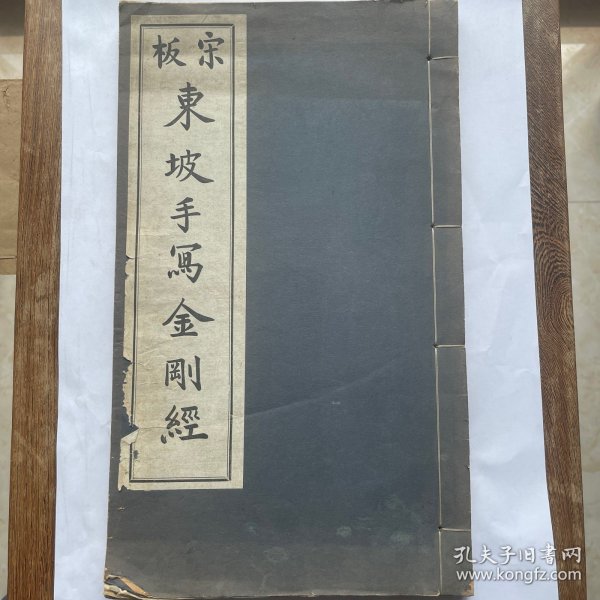 宋板
東坡手寫金剛經
孔夫子旧书网
www.kongfz.com